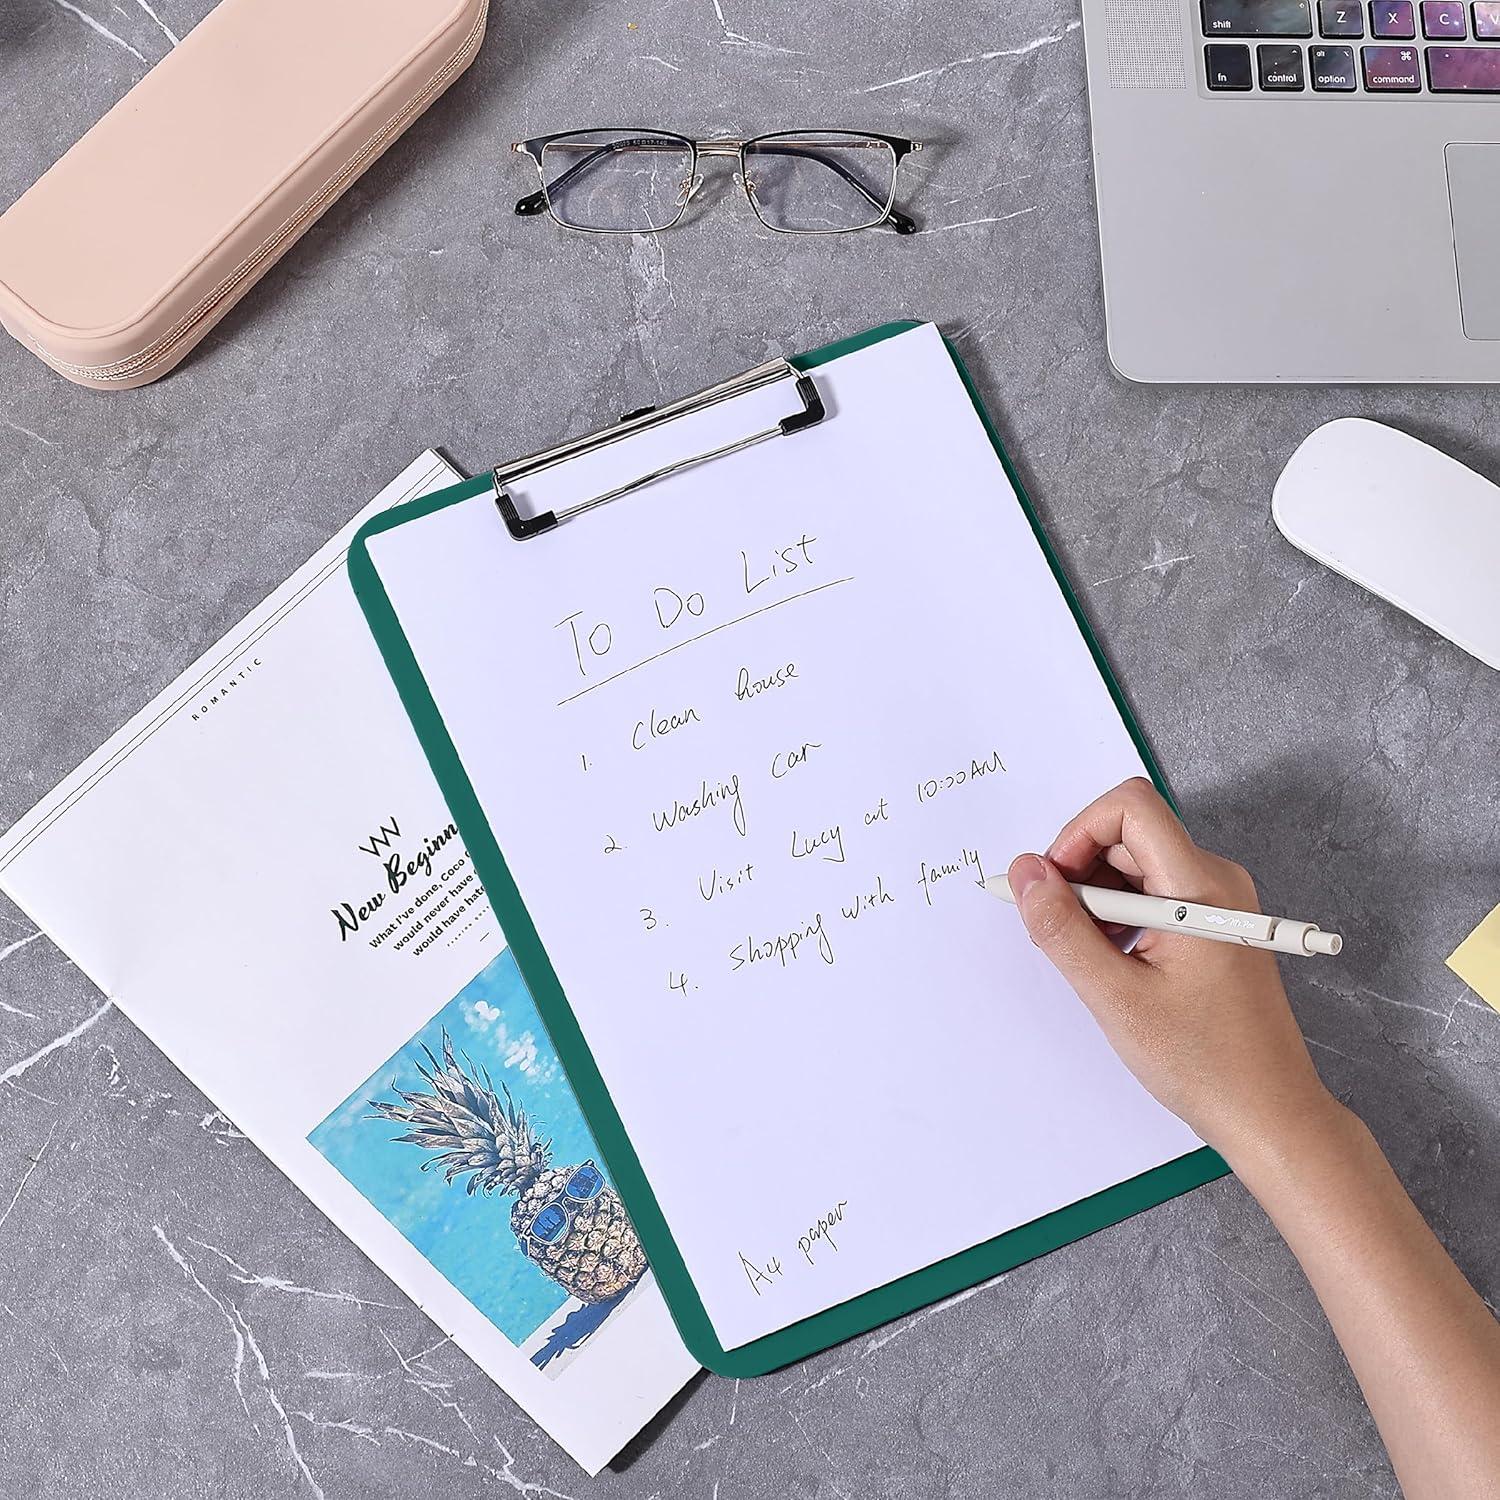 shift
Z
X
C
V
fn
control
alt
option
⌘
command
To Do List
1. Clean house
2. Washing car
3. Visit Lucy at 10:00AM
4. Shopping with family
A4 paper
ROMANTIC
New Beginn
What I've done, Coco
would never have
would have hat